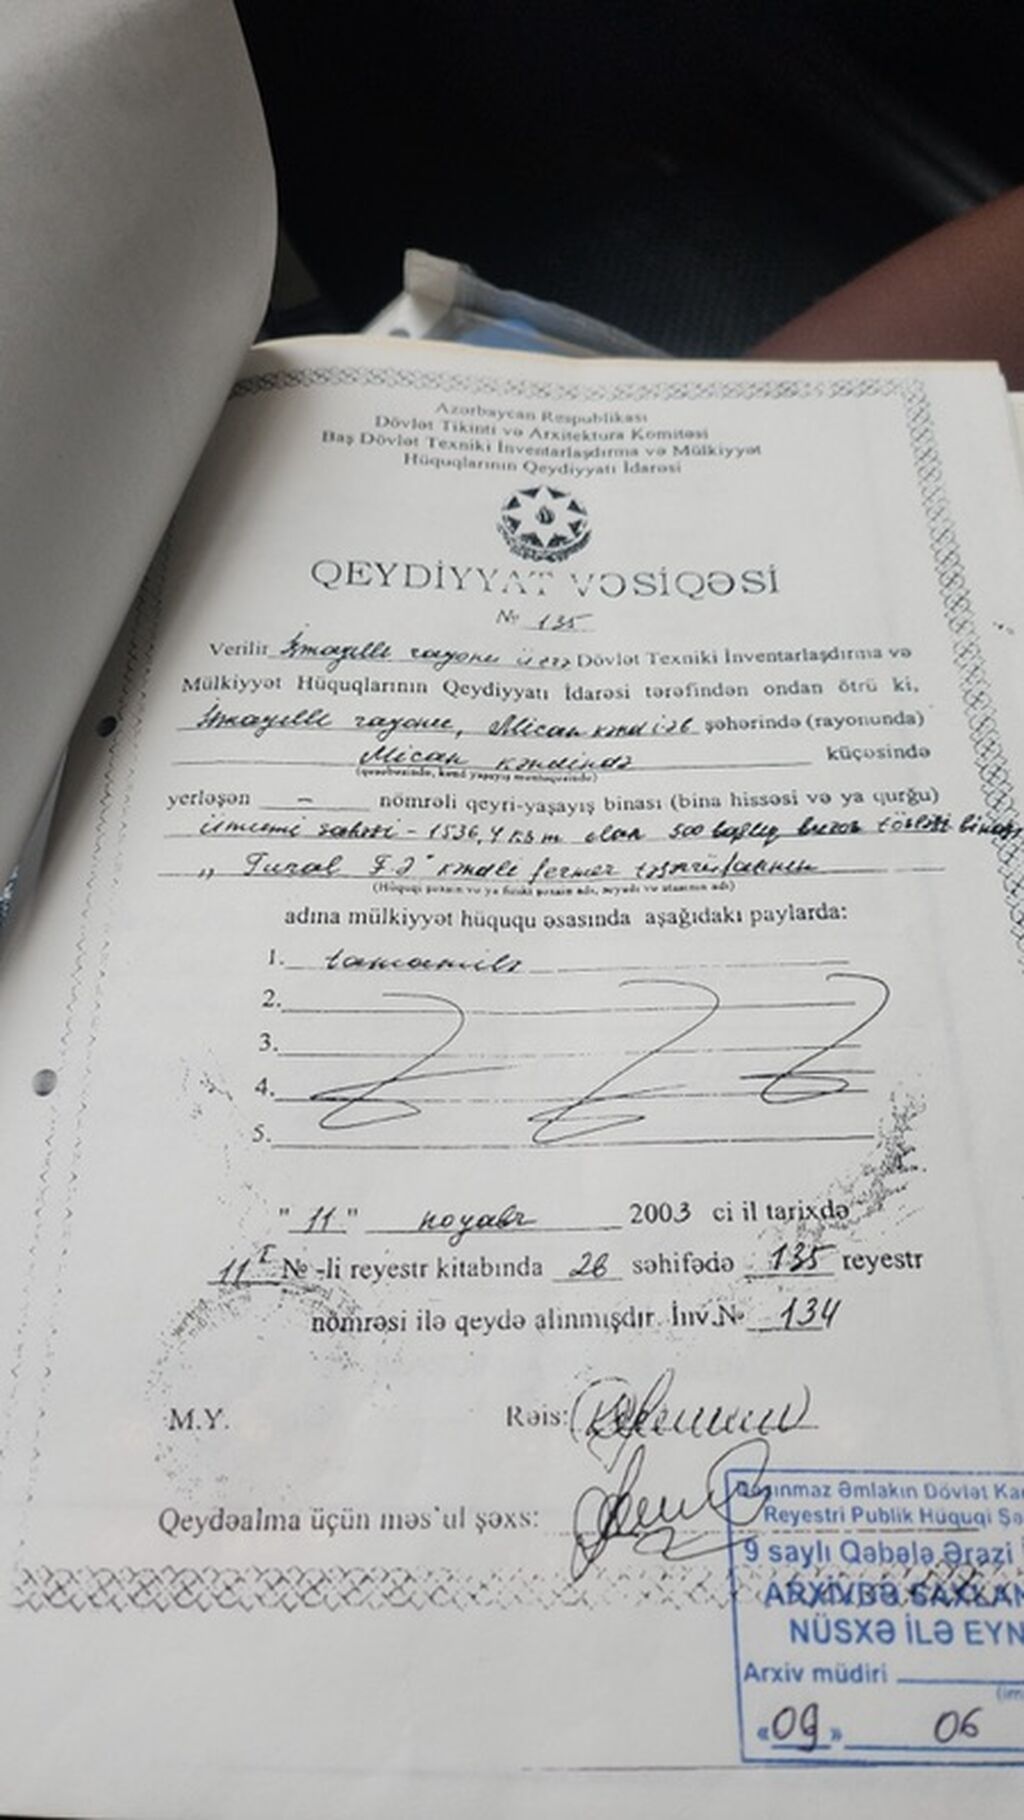 Azərbaycan Respublikası
Dövlət Tikinti və Arxitektura Komitəsi
Baş Dövlət Texniki İnventarlaşdırma və Mülkiyyət
Hüquqlarının Qeydiyyatı İdarəsi
QEYDİYYAT VƏSİQƏSİ
№ 135
Verilir İsmayıllı rayonu üzrə Dövlət Texniki İnventarlaşdırma və
Mülkiyyət Hüquqlarının Qeydiyyatı İdarəsi tərəfindən ondan ötrü ki,
İsmayıllı rayonu, Mican kənd İƏD şəhərində (rayonunda)
Mican kəndində küçəsində
(qəsəbəsində, kənd yaşayış məntəqəsində)
yerləşən – nömrəli qeyri-yaşayış binası (bina hissəsi və ya qurğu)
ümumi sahəsi - 1536,4 kv.m olan 500 başlıq buzov tövləsi binası
„Tural F.Ə" kəndli fermer təsərrüfatının
(Hüquqi şəxsin və ya fiziki şəxsin adı, soyadı və atasının adı)
adına mülkiyyət hüququ əsasında aşağıdakı paylarda:
1. tamamilə
2.
3.
4.
5.
"11" noyabr 2003 ci il tarixdə
11 I № -li reyestr kitabında 26 səhifədə 135 reyestr
nömrəsi ilə qeydə alınmışdır. İnv.№ 134
M.Y. Rəis:
Qeydəalma üçün məs'ul şəxs:
Daşınmaz Əmlakın Dövlət Ka
Reyestri Publik Hüquqi Şə
9 saylı Qəbələ Ərazi
ARXİVDƏ SAXLAN
NÜSXƏ İLƏ EYN
Arxiv müdiri
(im
«09» 06